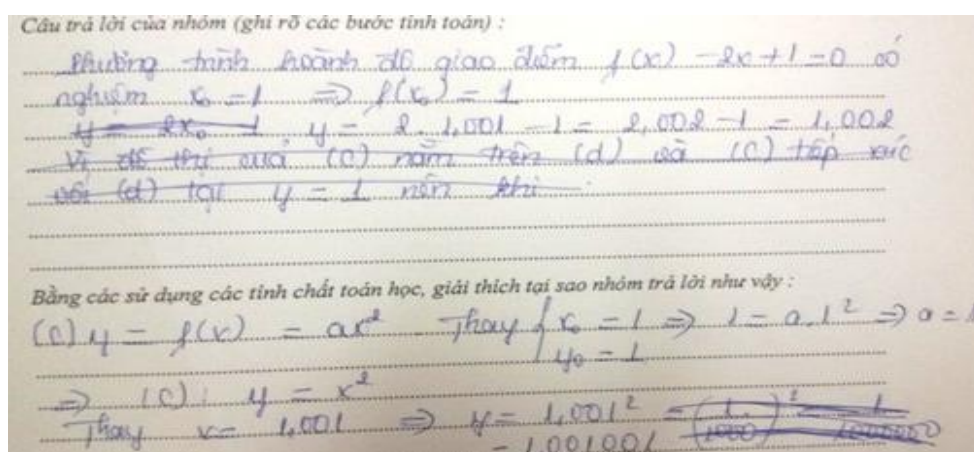 Câu trả lời của nhóm (ghi rõ các bước tính toán) :
Phương trình hoành độ giao điểm f(x) - 2x + 1 = 0 có
nghiệm x₀ = 1 => f(x₀) = 1
y = 2x₀ - 1 y = 2. 1,001 - 1 = 2,002 - 1 = 1,002
Vì đồ thị của (C) nằm trên (d) và (C) tiếp xúc
với (d) tại y = 1 nên khi
Bằng các sử dụng các tính chất toán học, giải thích tại sao nhóm trả lời như vậy :
(C) y = f(x) = ax² Thay { x₀ = 1 => 1 = a.1² => a = 1
y₀ = 1
=> (C) : y = x²
Thay x = 1,001 => y = 1,001² = (1/1000)² = 1/1000000
= 1,001001